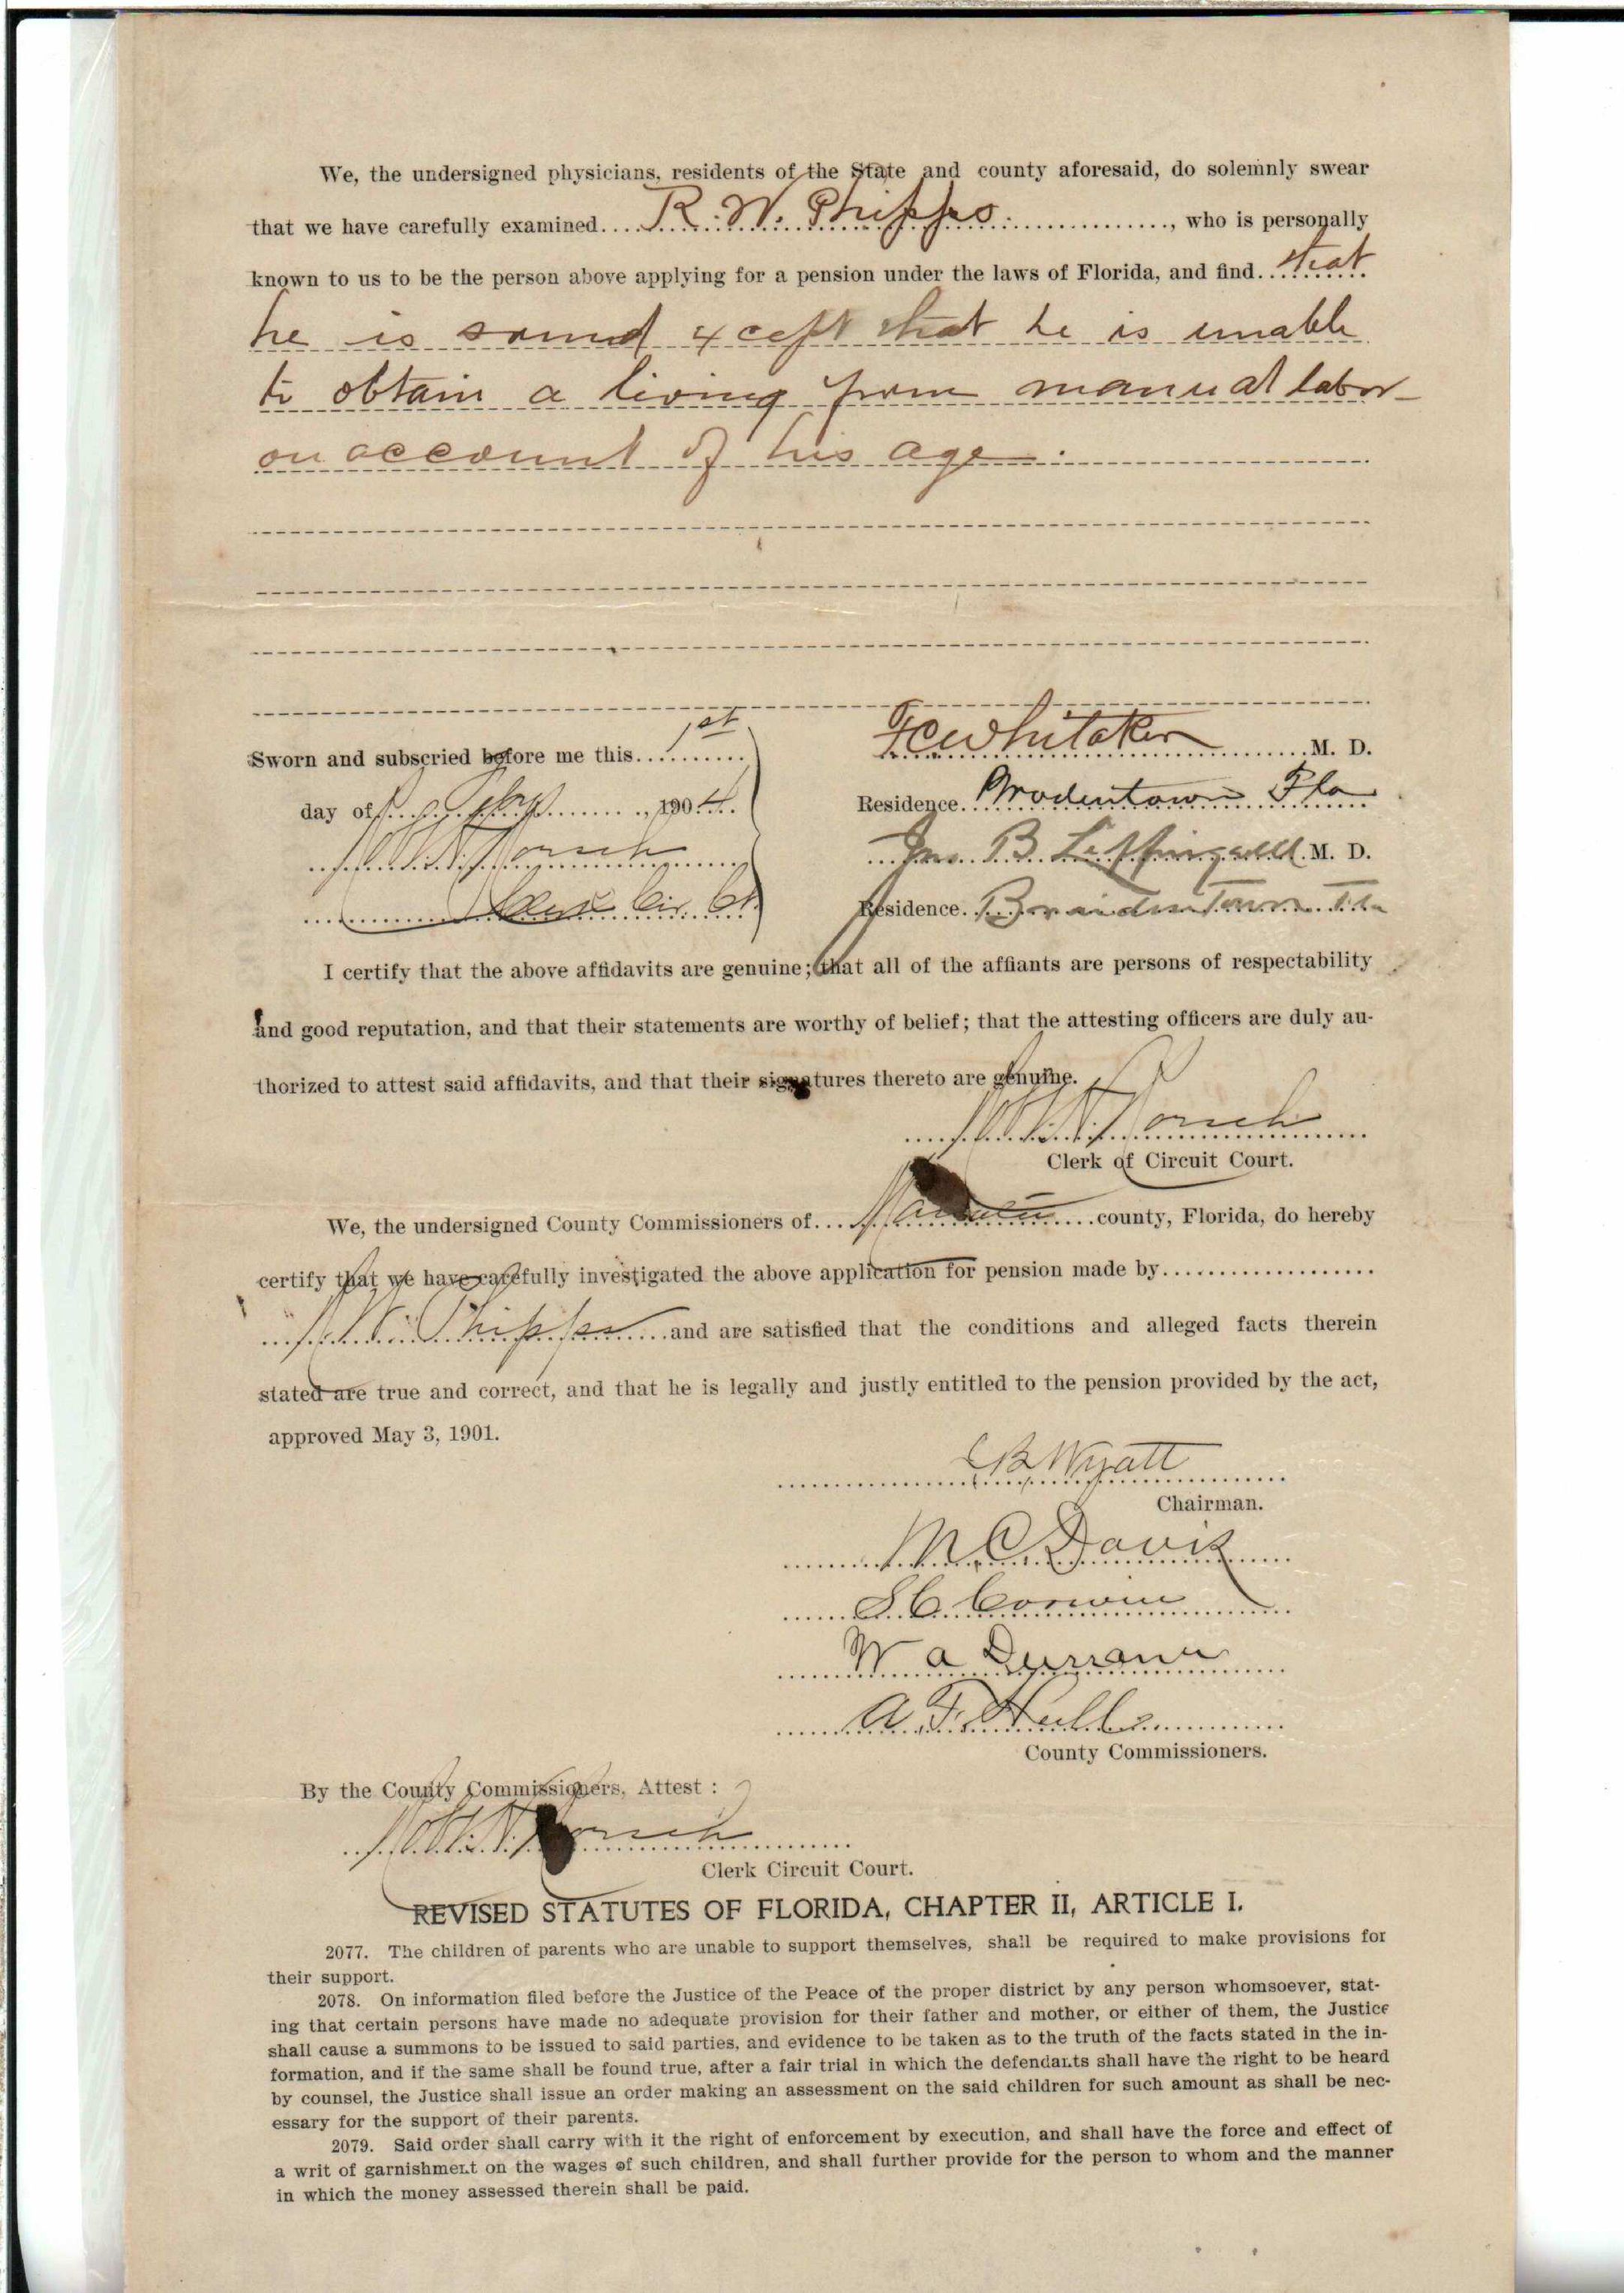 We, the undersigned physicians, residents of the State and county aforesaid, do solemnly swear
that we have carefully examined....R. W. Phipps..............., who is personally
known to us to be the person above applying for a pension under the laws of Florida, and find..that
he is sound xcept that he is unable
to obtain a living from manual labor
on account of his age.
FCWhitaker M. D.
Sworn and subscried before me this 1st
Residence. Braidentown Fla
day of , 1904
Jno. B Leffingwell M. D.
Clerk Cir. Ct.
Residence. Braidentown Fla
I certify that the above affidavits are genuine; that all of the affiants are persons of respectability
and good reputation, and that their statements are worthy of belief; that the attesting officers are duly au-
thorized to attest said affidavits, and that their signatures thereto are genuine.
Clerk of Circuit Court.
We, the undersigned County Commissioners of Manatee county, Florida, do hereby
certify that we have carefully investigated the above application for pension made by
R. W. Phipps and are satisfied that the conditions and alleged facts therein
stated are true and correct, and that he is legally and justly entitled to the pension provided by the act,
approved May 3, 1901.
CB Wyatt
Chairman.
M C Davis
S C Corwin
W a Durrance
A. F. Hull
County Commissioners.
By the County Commissioners, Attest :
Clerk Circuit Court.
REVISED STATUTES OF FLORIDA, CHAPTER II, ARTICLE I.
2077. The children of parents who are unable to support themselves, shall be required to make provisions for
their support.
2078. On information filed before the Justice of the Peace of the proper district by any person whomsoever, stat-
ing that certain persons have made no adequate provision for their father and mother, or either of them, the Justice
shall cause a summons to be issued to said parties, and evidence to be taken as to the truth of the facts stated in the in-
formation, and if the same shall be found true, after a fair trial in which the defendants shall have the right to be heard
by counsel, the Justice shall issue an order making an assessment on the said children for such amount as shall be nec-
essary for the support of their parents.
2079. Said order shall carry with it the right of enforcement by execution, and shall have the force and effect of
a writ of garnishment on the wages of such children, and shall further provide for the person to whom and the manner
in which the money assessed therein shall be paid.